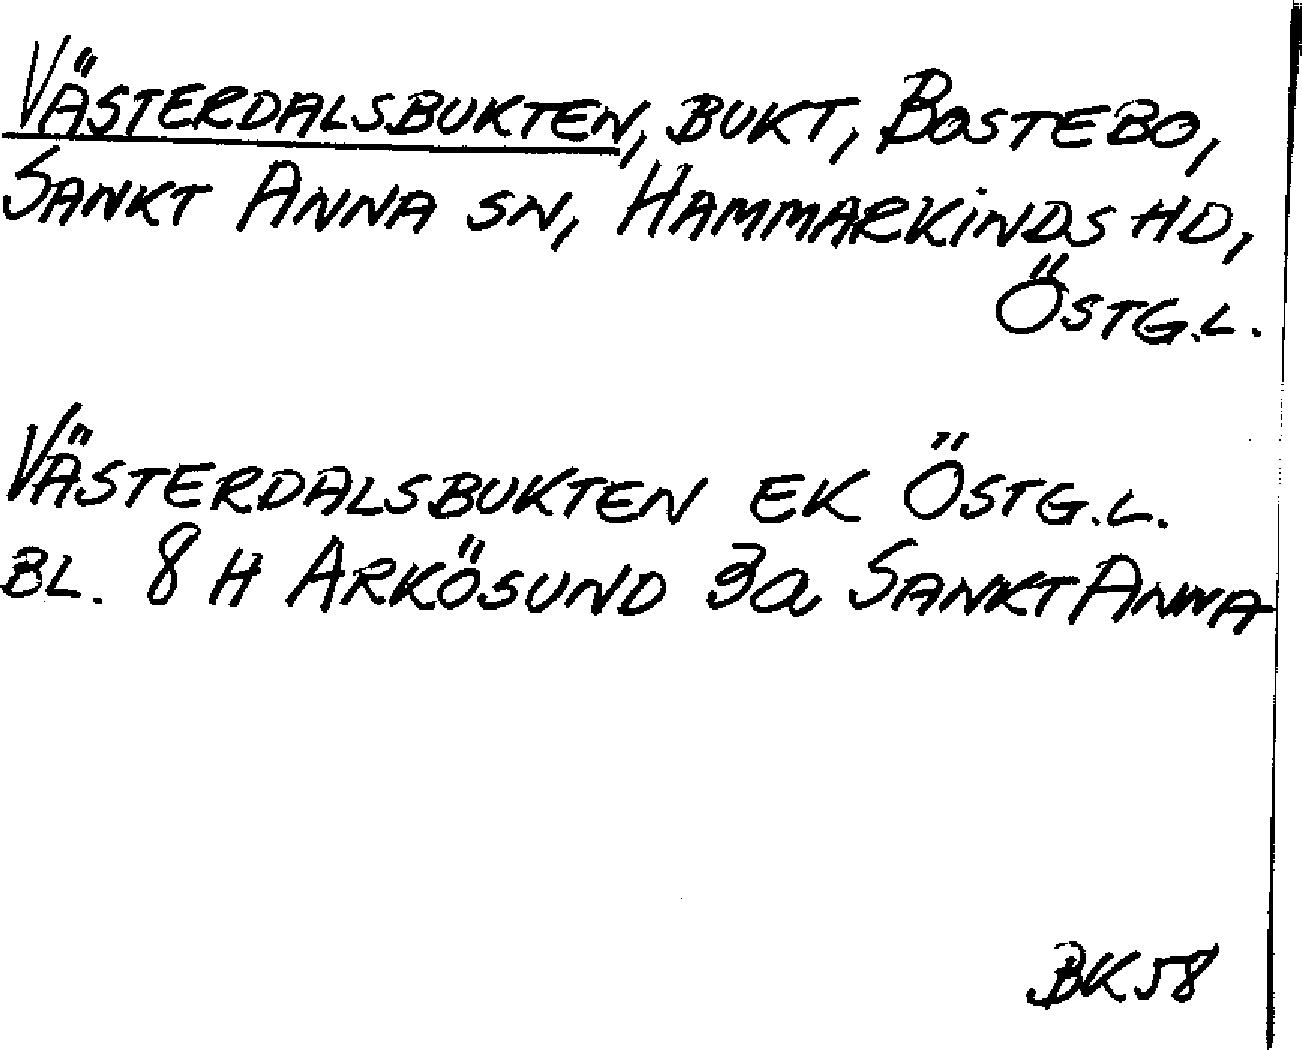 VÄSTERDALSBUKTEN, BUKT, BOSTEBO,
SANKT ANNA SN, HAMMARKINDS HD,
ÖSTG.L.
VÄSTERDALSBUKTEN EK ÖSTG.L.
BL. 8 H ARKÖSUND 3a SANKT ANNA
BK58